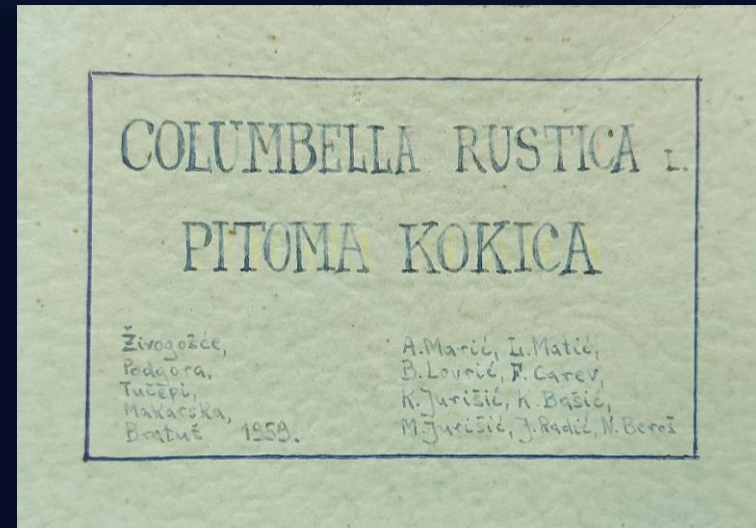 COLUMBELLA RUSTICA L.
PITOMA KOKICA
Živogošće,
Podgora,
Tučepi,
Makarska,
Bratuš 1959.
A. Marić, L. Matić,
B. Lovrić, F. Carev,
K. Jurišić, K. Bašić,
M. Jurišić, J. Radić, N. Beroš